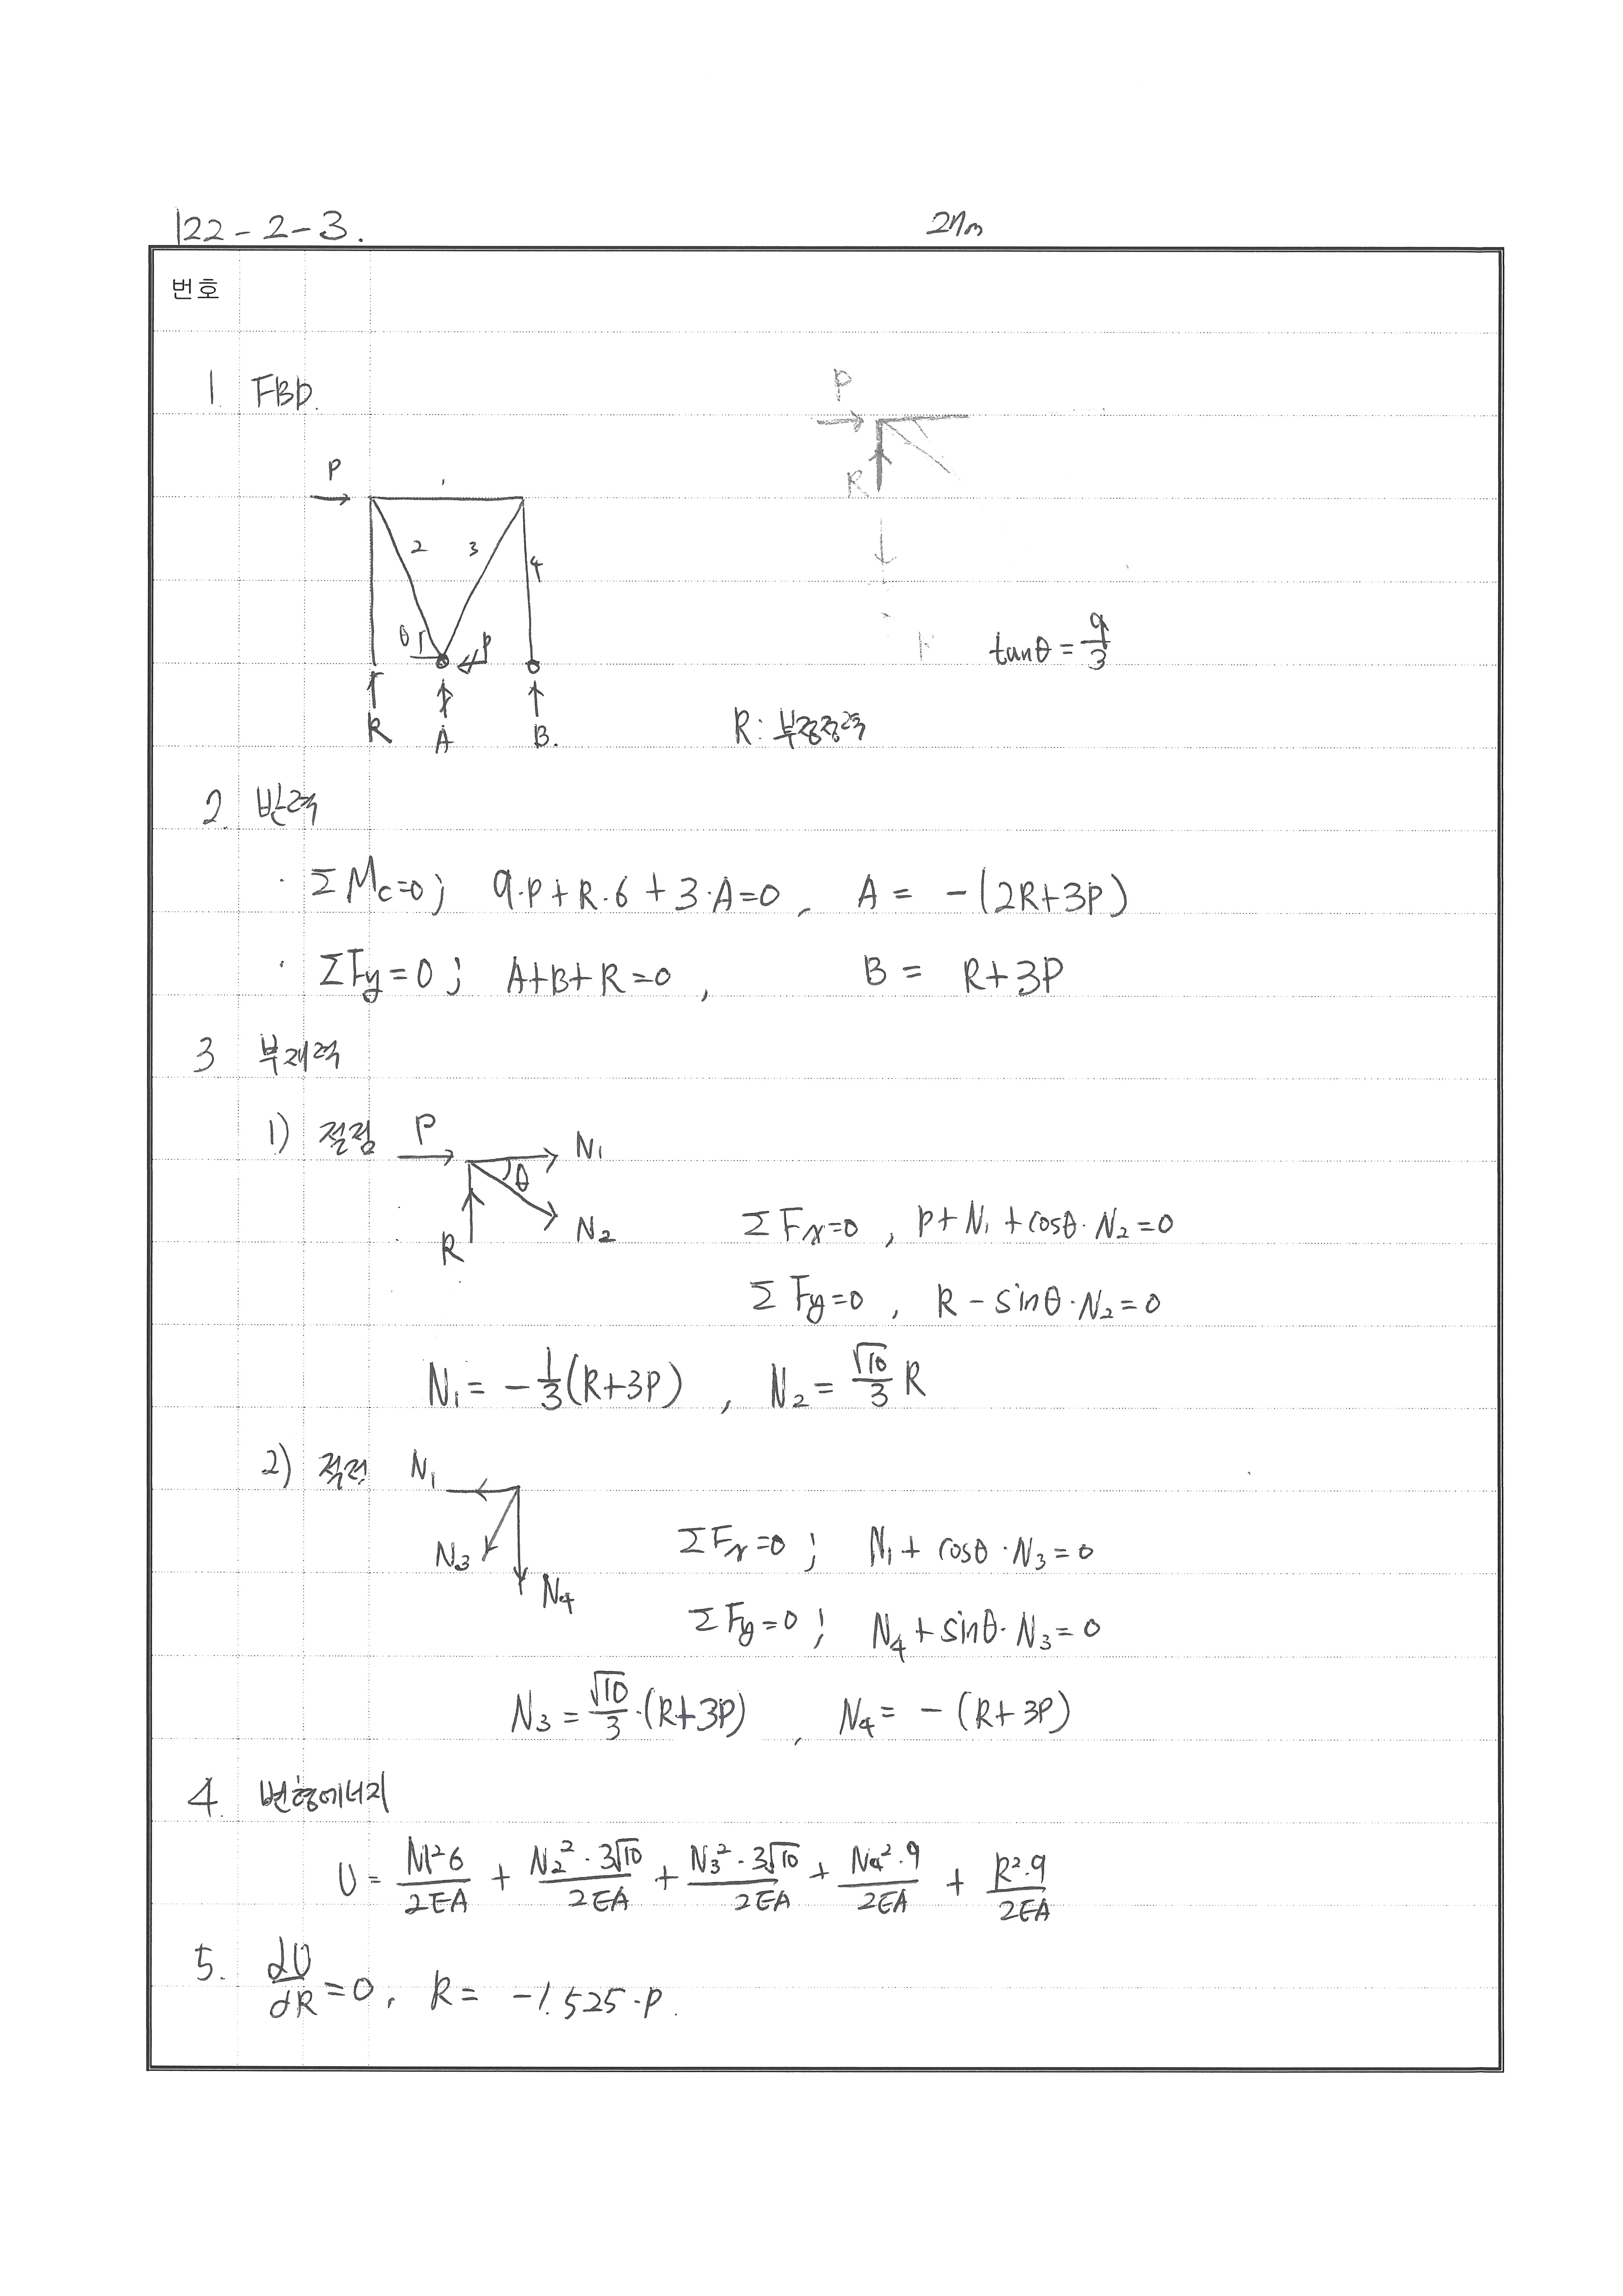 122 - 2 - 3.
번호
1. FBD.
P
P
R
1
2 3 4
θ P
tanθ = 9/3
R A B.
R : 부정정력
2. 반력
· ΣMc=0 ; 9·P + R·6 + 3·A=0 , A = -(2R+3P)
· ΣFy=0 ; A+B+R=0 , B = R+3P
3 부재력
1) 절점 P N₁
θ
R N₂
ΣFx=0 , P+N₁+cosθ·N₂=0
ΣFy=0 , R - sinθ·N₂=0
N₁ = -1/3(R+3P) , N₂ = √10/3 R
2) 절점 N₁
N₃ N₄
ΣFx=0 ; N₁ + cosθ·N₃=0
ΣFy=0 ; N₄ + sinθ·N₃=0
N₃ = √10/3·(R+3P) , N₄ = -(R+3P)
4. 변형에너지
U = N1²6/2EA + N₂²·3√10/2EA + N₃²·3√10/2EA + N₄²·9/2EA + R²·9/2EA
5. dU/dR=0, R = -1.525·P.